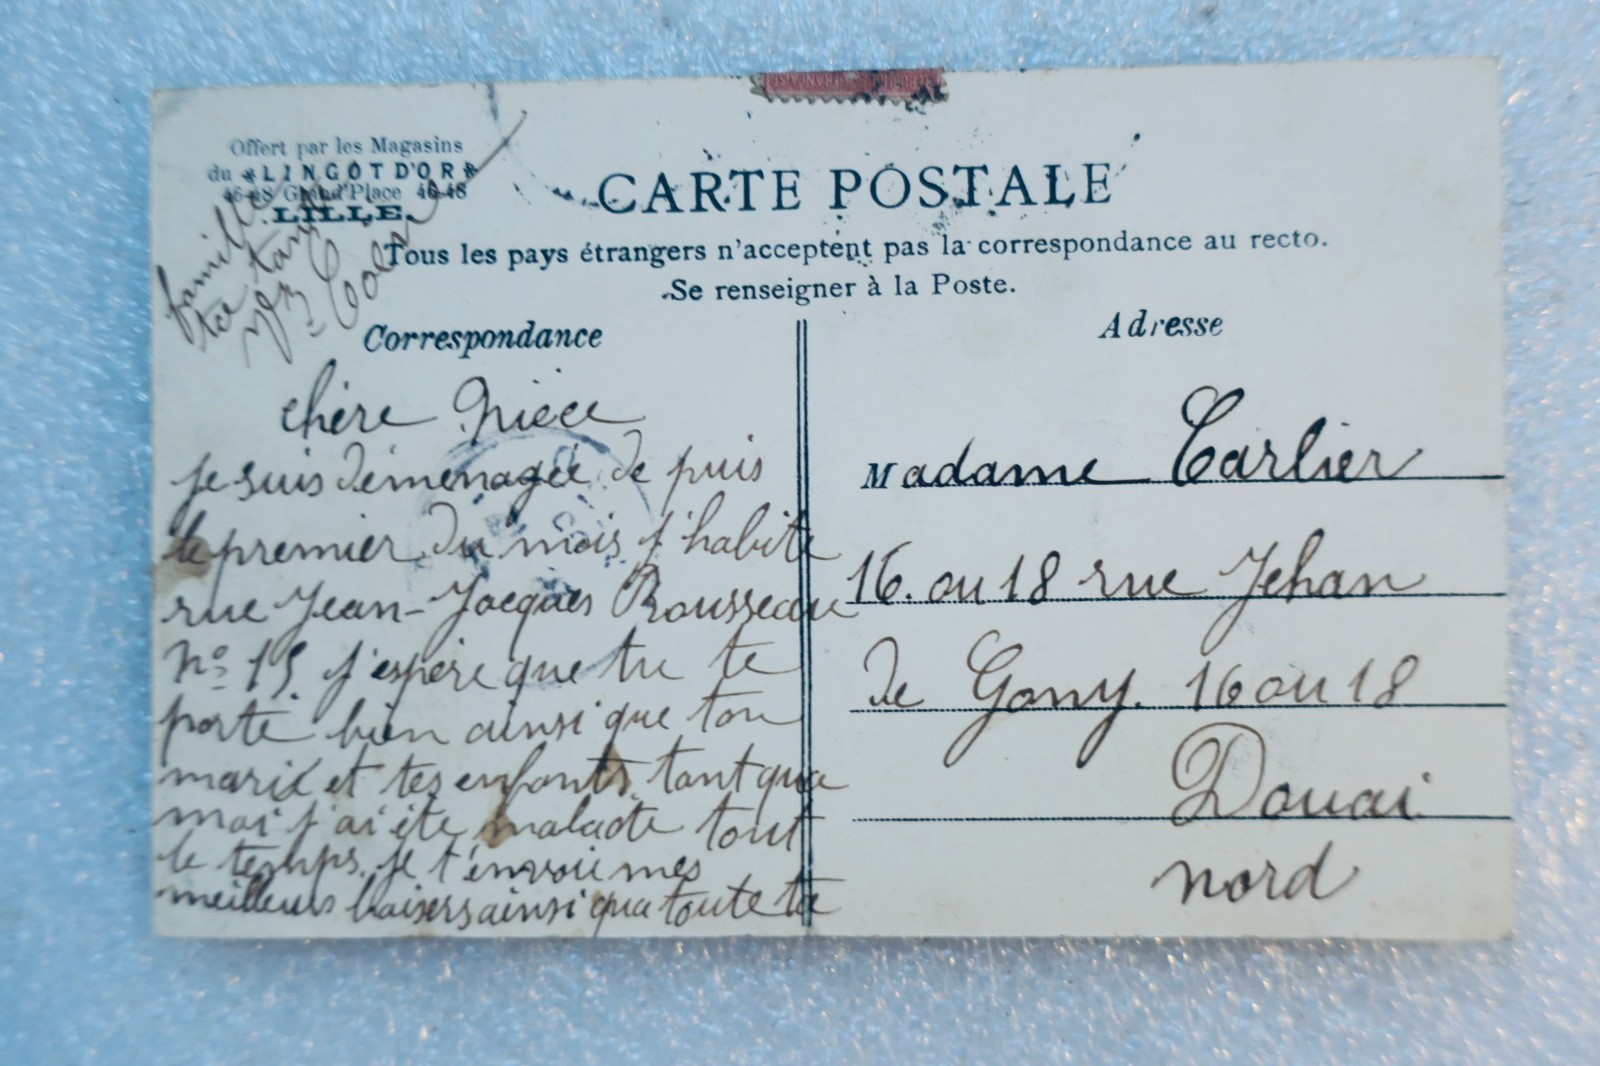 RÉPUBLIQUE FRANÇAISE
Offert par les Magasins
du LINGOT D'OR
46-48 Grand'Place 46-48
LILLE
CARTE POSTALE
Tous les pays étrangers n'acceptent pas la correspondance au recto.
Se renseigner à la Poste.
Correspondance
chère Nièce
je suis déménagée de puis
le premier du mois j'habite
rue Jean-Jacques Rousseau
No 15 j'espère que tu te
porte bien ainsi que ton
mari et tes enfants tant qua
moi j'ai été malade tout
le temps. je t'envoi mes
meilleurs baisers ainsi qua toute ta
famille
ta tante
Adresse
Madame Carlier
16. ou 18 rue Jehan
de Gony. 16 ou 18
Douai
nord